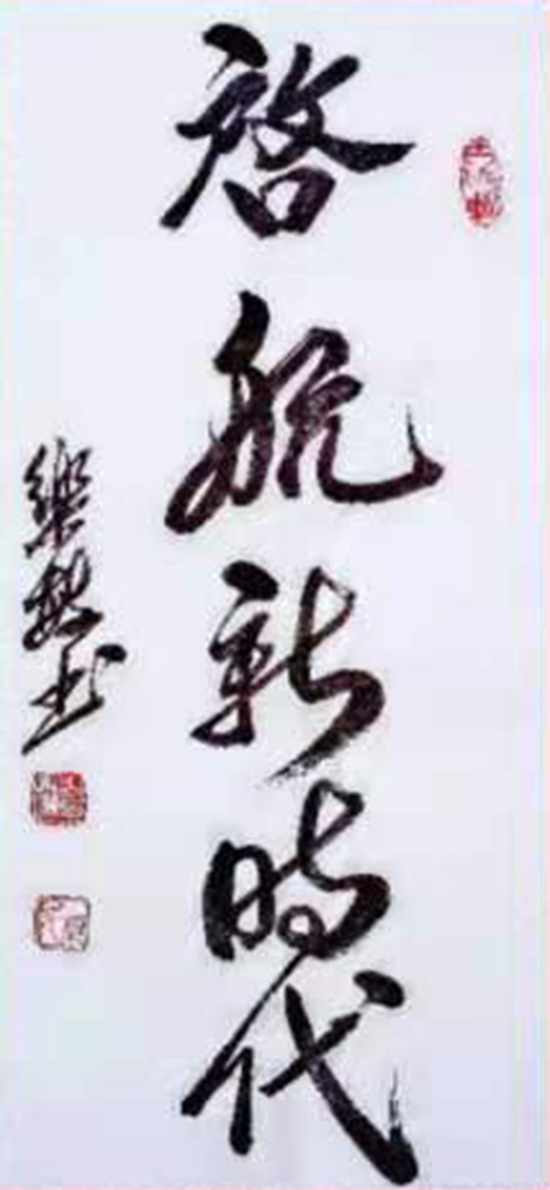 啓航新時代
樂
書